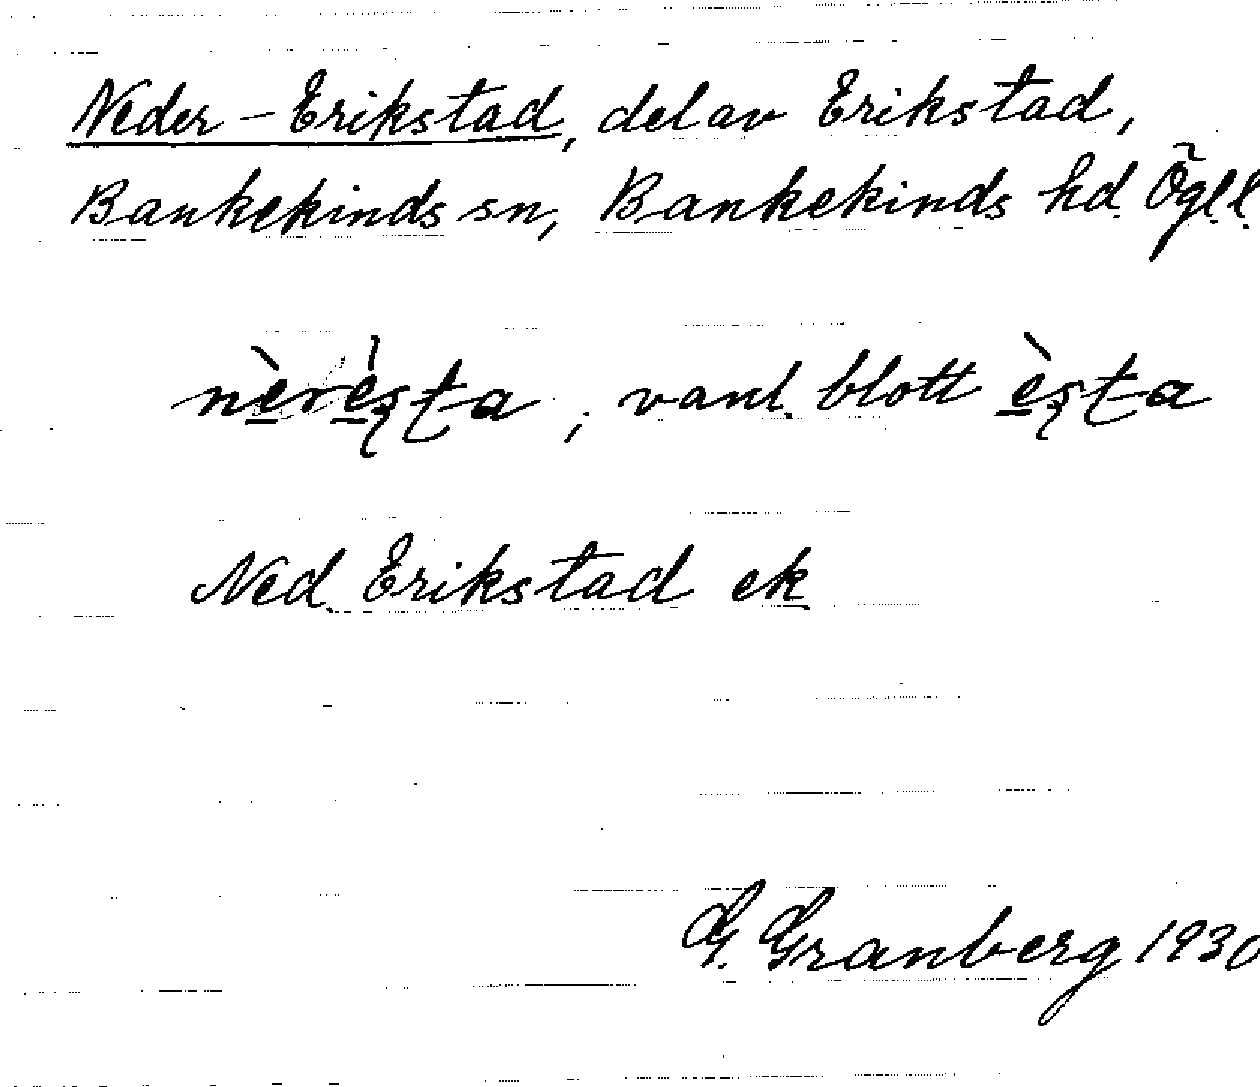 Neder-Erikstad, del av Erikstad,
Bankekinds sn, Bankekinds hd. Ögl.
nèrèsta, vanl. blott èsta
Ned. Erikstad ek
G. Granberg 1930